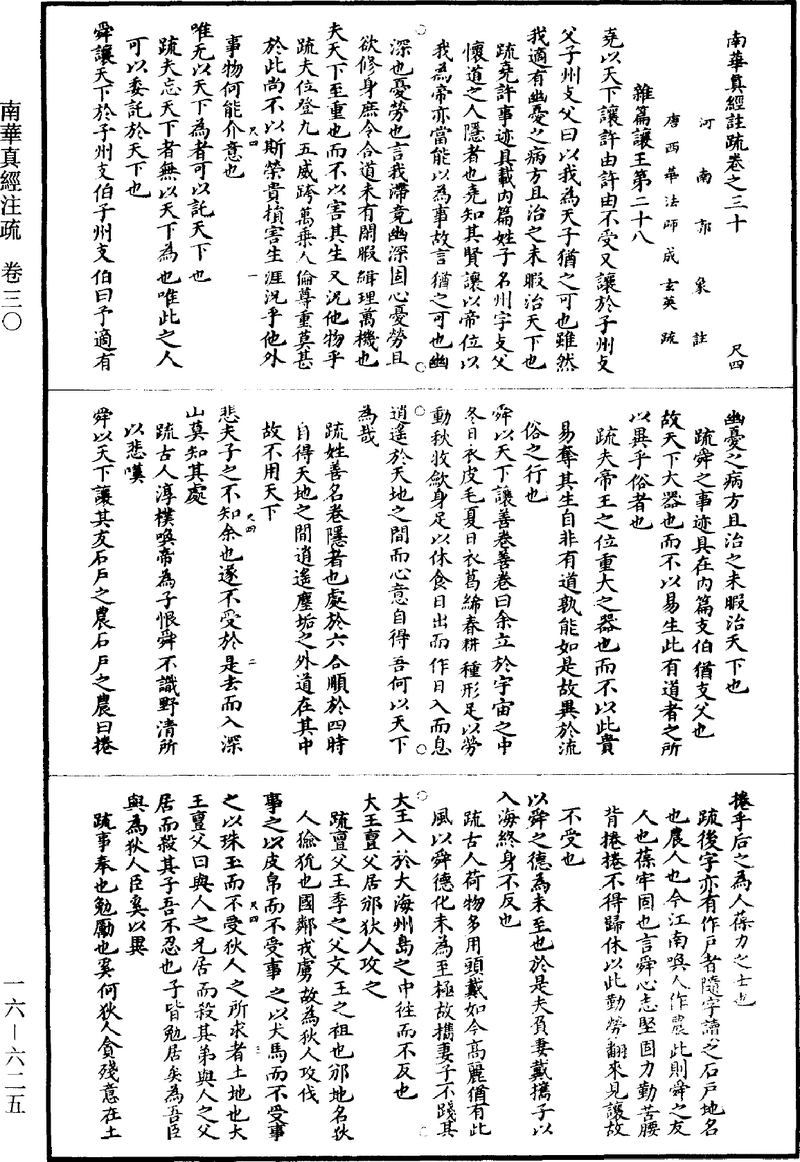 南華真經註疏卷之三十
河南郭象註
唐西華法師成玄英疏
尺四
雜篇讓王第二十八
堯以天下讓許由許由不受又讓於子州支
父子州支父曰以我為天子猶之可也雖然
我適有幽憂之病方且治之未暇治天下也
疏堯許事迹具載內篇姓子名州字支父
懷道之人隱者也堯知其賢讓以帝位以
我為帝亦當能以為事故言猶之可也幽
深也憂勞也言我滯竟幽深固心憂勞且
欲修身庶令合道未有閑暇緝理萬機也
夫天下至重也而不以害其生又況他物乎
疏夫位登九五威跨萬乘人倫尊重莫甚
於此尚不以斯榮貴損害生涯況乎他外
事物何能介意也
尺四
一
唯无以天下為者可以託天下也
疏夫忘天下者無以天下為也唯此之人
可以委託於天下也
舜讓天下於子州支伯子州支伯曰予適有
幽憂之病方且治之未暇治天下也
疏舜之事迹具在內篇支伯猶支父也
故天下大器也而不以易生此有道者之所
以異乎俗者也
疏夫帝王之位重大之器也而不以此貴
易奪其生自非有道孰能如是故異於流
俗之行也
舜以天下讓善卷善卷曰余立於宇宙之中
冬日衣皮毛夏日衣葛絺春耕種形足以勞
動秋收斂身足以休食日出而作日入而息
逍遙於天地之間而心意自得吾何以天下
為哉
疏姓善名卷隱者也處於六合順於四時
自得天地之間逍遙塵垢之外道在其中
故不用天下
尺四
二
悲夫子之不知余也遂不受於是去而入深
山莫知其處
疏古人淳樸喚帝為子恨舜不識野清所
以悲嘆
舜以天下讓其友石戶之農石戶之農曰捲
捲乎后之為人葆力之士也
疏後字亦有作戶者隨字讀之石戶地名
也農人也今江南喚人作農此則舜之友
人也葆牢固也言舜心志堅固力勤苦腰
背捲捲不得歸休以此勤勞翻來見讓故
不受也
以舜之德為未至也於是夫負妻戴攜子以
入海終身不反也
疏古人荷物多用頭戴如今高麗猶有此
風以舜德化未為至極故攜妻子不踐其
大王入於大海州島之中往而不反也
大王亶父居邠狄人攻之
疏亶父王季之父文王之祖也邠地名狄
人獫狁也國鄰戎虜故為狄人攻伐
尺四
三
事之以皮帛而不受事之以犬馬而不受事
之以珠玉而不受狄人之所求者土地也大
王亶父曰與人之兄居而殺其弟與人之父
居而殺其子吾不忍也子皆勉居矣為吾臣
與為狄人臣奚以異
疏事奉也勉勵也奚何狄人貪殘意在土
南華真經注疏　卷三〇
一六—六二五